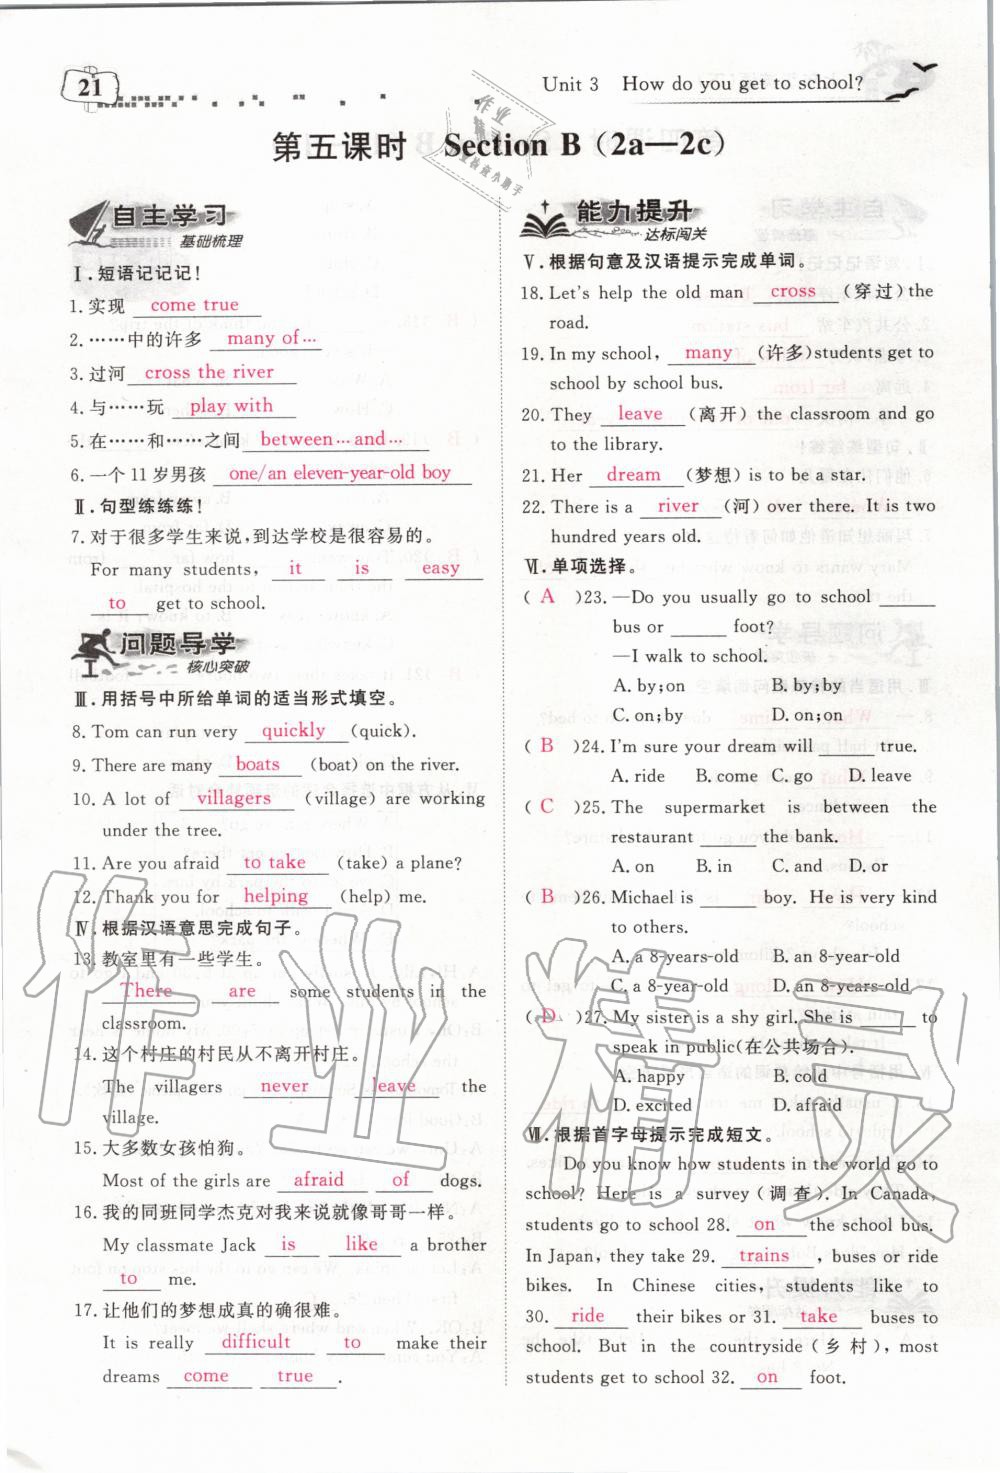 21
Unit 3 How do you get to school?
第五课时 Section B (2a—2c)
自主学习
基础梳理
Ⅰ.短语记记记!
1.实现 come true
2.……中的许多 many of…
3.过河 cross the river
4.与……玩 play with
5.在……和……之间 between…and…
6.一个11岁男孩 one/an eleven-year-old boy
Ⅱ.句型练练练!
7.对于很多学生来说,到达学校是很容易的。
For many students, it is easy
to get to school.
问题导学
核心突破
Ⅲ.用括号中所给单词的适当形式填空。
8. Tom can run very quickly (quick).
9. There are many boats (boat) on the river.
10. A lot of villagers (village) are working
under the tree.
11. Are you afraid to take (take) a plane?
12. Thank you for helping (help) me.
Ⅳ.根据汉语意思完成句子。
13.教室里有一些学生。
There are some students in the
classroom.
14.这个村庄的村民从不离开村庄。
The villagers never leave the
village.
15.大多数女孩怕狗。
Most of the girls are afraid of dogs.
16.我的同班同学杰克对我来说就像哥哥一样。
My classmate Jack is like a brother
to me.
17.让他们的梦想成真的确很难。
It is really difficult to make their
dreams come true.
能力提升
达标闯关
Ⅴ.根据句意及汉语提示完成单词。
18. Let's help the old man cross (穿过) the
road.
19. In my school, many (许多)students get to
school by school bus.
20. They leave (离开) the classroom and go
to the library.
21. Her dream (梦想) is to be a star.
22. There is a river (河) over there. It is two
hundred years old.
Ⅵ.单项选择。
( A )23. —Do you usually go to school ______
bus or ______ foot?
—I walk to school.
A. by;on B. by;by
C. on;by D. on;on
( B )24. I'm sure your dream will ______ true.
A. ride B. come C. go D. leave
( C )25. The supermarket is between the
restaurant ______ the bank.
A. on B. in C. and D. or
( B )26. Michael is ______ boy. He is very kind
to others.
A. a 8-years-old B. an 8-year-old
C. a 8-year-old D. an 8-years-old
( D )27. My sister is a shy girl. She is ______ to
speak in public(在公共场合).
A. happy B. cold
D. excited D. afraid
Ⅶ.根据首字母提示完成短文。
Do you know how students in the world go to
school? Here is a survey (调查). In Canada,
students go to school 28. on the school bus.
In Japan, they take 29. trains, buses or ride
bikes. In Chinese cities, students like to
30. ride their bikes or 31. take buses to
school. But in the countryside (乡村), most
students get to school 32. on foot.
作业精灵